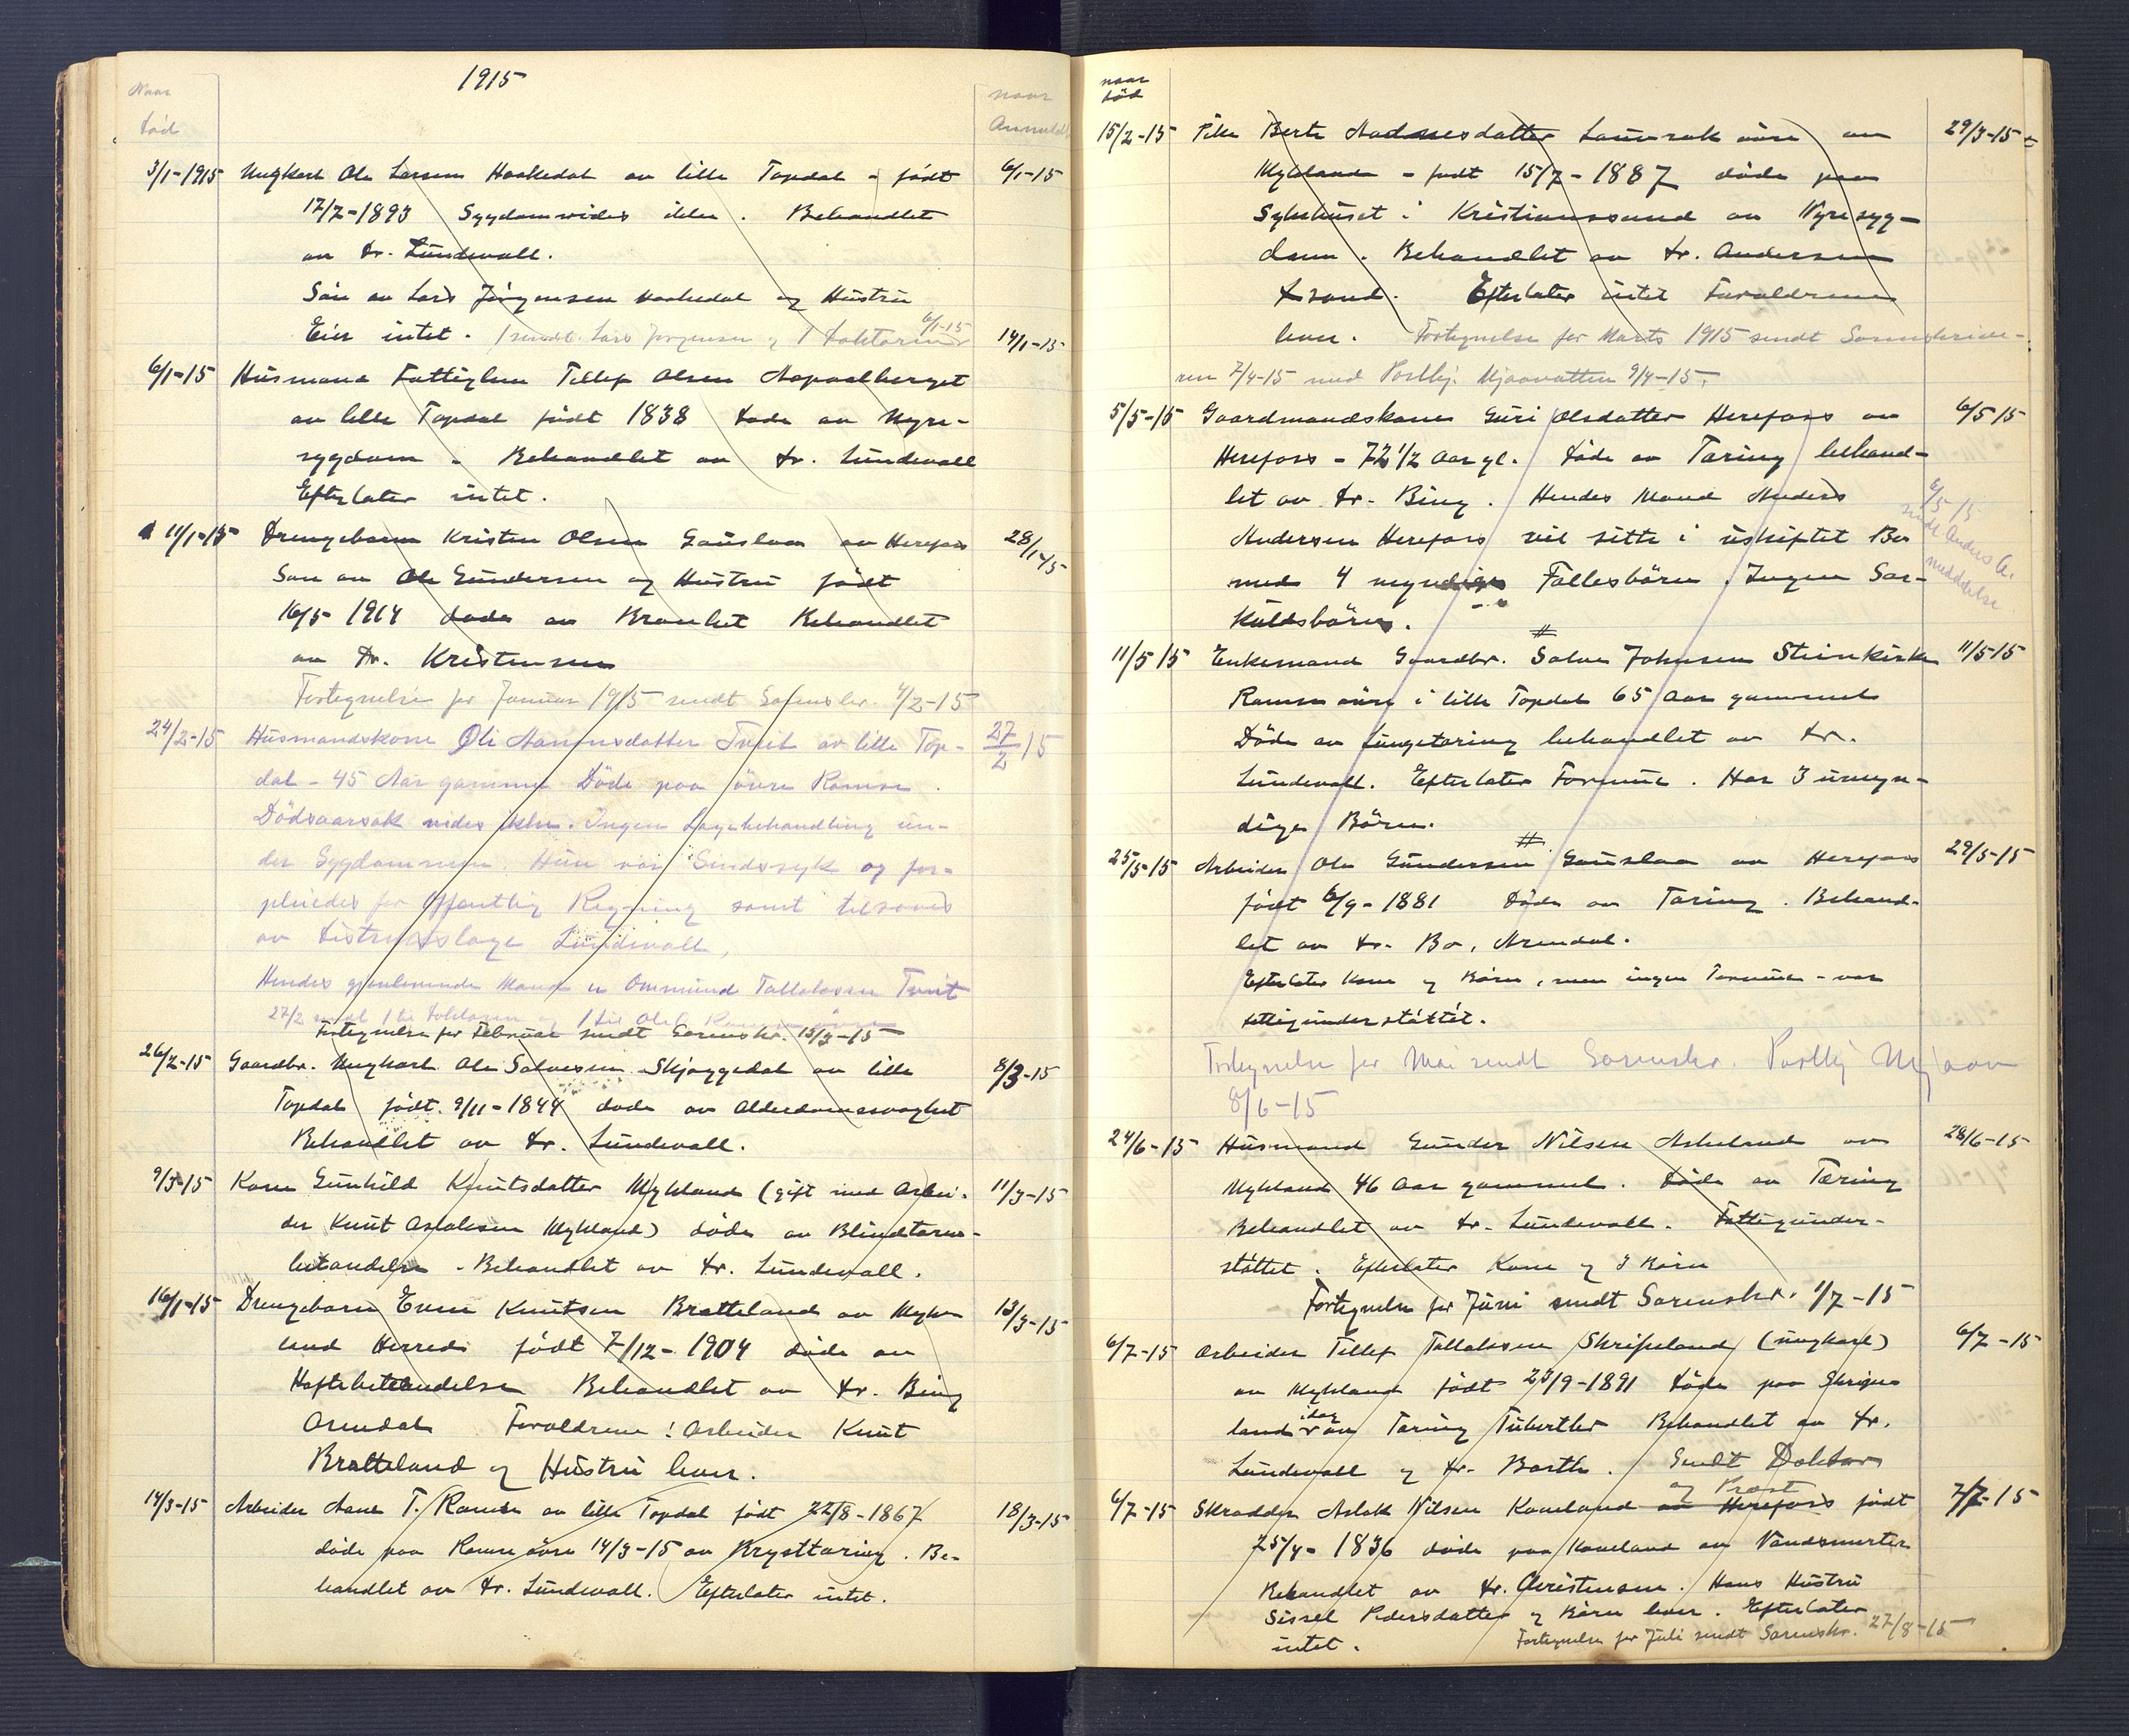 1915
Naar
død
naar
Anmeldt
3/1-1915 Ungkarl Ole Larsen Haakedal av lille Topdal - født 6/1-15
17/7-1893 Sygdom vides ikke. Behandlet
av Dr. Lundevall.
Søn av Lars Jørgensen Haakedal og Hustru
Eier intet. 1 sendt Lars Jørgensen og 1 Doktoren 6/1-15 14/1-15
6/1-15 Husmand Fattiglem Tellef Olsen
av lille Topdal født 1838 døde av Nyre-
sygdom - Behandlet av Dr. Lundevall
Efterlater intet.
11/1-15 Drengebarn Kristen Olsen Gauslaa av Herefos 28/1-15
Søn av Ole Gundersen og Hustru født
16/5 1914 døde av Bronkit Behandlet
av Dr. Kristensen
Fortegnelse for Januar 1915 sendt Sorenskr. 4/2-15
24/2-15 Husmandskone Oli Aanonsdatter Tveit av lille Top- 27/2 15
dal - 45 Aar gammel Døde paa øvre Ramse.
Dødsaarsak vides ikke. Ingen Lægebehandling un-
der Sygdommen. Hun var Sindssyk og for-
pleiedes for Offentlig Regning samt tilsaaes
av Distriktslæge Lundevall,
Hendes gjenlevende Mand er Ommund Tallaksen Tveit
27/2 sendt 1 til Doktoren og 1 til Ole
Fortegnelse for Februar sendt Sorenskr. 15/3-15
26/2-15 Gaardbr. Ungkarl Ole Salvesen Skjæggedal av lille 8/3-15
Topdal født 9/11-1844 døde av Alderdomssvaghet
Behandlet av Dr. Lundevall.
9/3-15 Kone Gunhild Knutsdatter Mykland (gift med Arbei- 11/3-15
der Knut Aslaksen Mykland) døde av Blindtarm-
betændelse - Behandlet av Dr. Lundevall.
16/1-15 Drengebarn Even Knutsen Bratteland av Myk- 13/3-15
land Herred født 7/12-1904 døde av
Hoftebetændelse Behandlet av Dr. Bing
Arendal Forældrene: Arbeider Knut
Bratteland og Hustru lever.
14/3-15 Arbeider Aane T. Ramse av lille Topdal født 22/8-1867 18/3-15
døde paa Ramse øvre 14/3-15 av Brysttæring. Be-
handlet av Dr. Lundevall. Efterlater intet.
naar
død
15/2-15 Pike Berte Aadnesdatter Lauvrak øvre av 29/3-15
Mykland - født 15/7-1887 døde paa
Sykehuset i Kristianssand av Nyresyg-
dom. Behandlet av Dr. Andersen
Krsand. Efterlater intet Forældrene
lever. Fortegnelse for Marts 1915 sendt Sorenskrive-
ren 7/4-15 med Postbj. Mjaavatten 9/4-15.
5/5-15 Gaardmandskone Guri Olsdatter Herefoss av 6/5 15
Herefoss - 72 1/2 Aar gl. døde av Tæring behand-
let av Dr. Bing. Hendes Mand Anders
Andersen Herefoss vil sitte i uskiftet Bo
med 4 myndige Fællesbørn. Ingen Sær-
kuldsbørn.
6/5 15
sendt Anders A.
meddelelse
11/5 15 Enkemand Gaardbr. Salve Johnsen Steinkirk 11/5 15
Ramse øvre i lille Topdal 65 Aar gammel
Døde av Lungetæring behandlet av Dr.
Lundevall. Efterlater Formue. Har 3 umyn-
dige Børn.
25/5-15 Arbeider Ole Gundersen Gauslaa av Herefoss 29/5-15
født 6/9-1881 Døde av Tæring. Behand-
let av Dr. Bo, Arendal.
Efterlater Kone og Børn, men ingen Formue - var
fattigunderstøttet.
Fortegnelse for Mai sendt Sorenskr. Postbj Mjaav
8/6-15
24/6-15 Husmand Gunder Nilsen Askeland av 28/6-15
Mykland 46 Aar gammel. Døde av Tæring
Behandlet av Dr. Lundevall. Fattigunder-
støttet. Efterlater Kone og 3 Børn
Fortegnelse for Juni sendt Sorenskr. 1/7-15
6/7-15 Arbeider Tellef Tallaksen Skripeland (ungkarl) 6/7-15
av Mykland født 25/9-1891 døde paa Skripe
land idag av Tæring Tuberkler Behandlet av Dr.
Lundevall og Dr. Barth. Sendt Doktor
og Prost
6/7-15 Skrædder Aslak Nilsen Kaveland av Herefoss født 7/7-15
25/4-1836 døde paa Kaveland av Vandsmerter
Behandlet av Dr. Christensen. Hans Hustru
Sissel Pedersdatter og Børn lever. Efterlater
intet. Fortegnelse for Juli sendt Sorenskr. 27/8-15